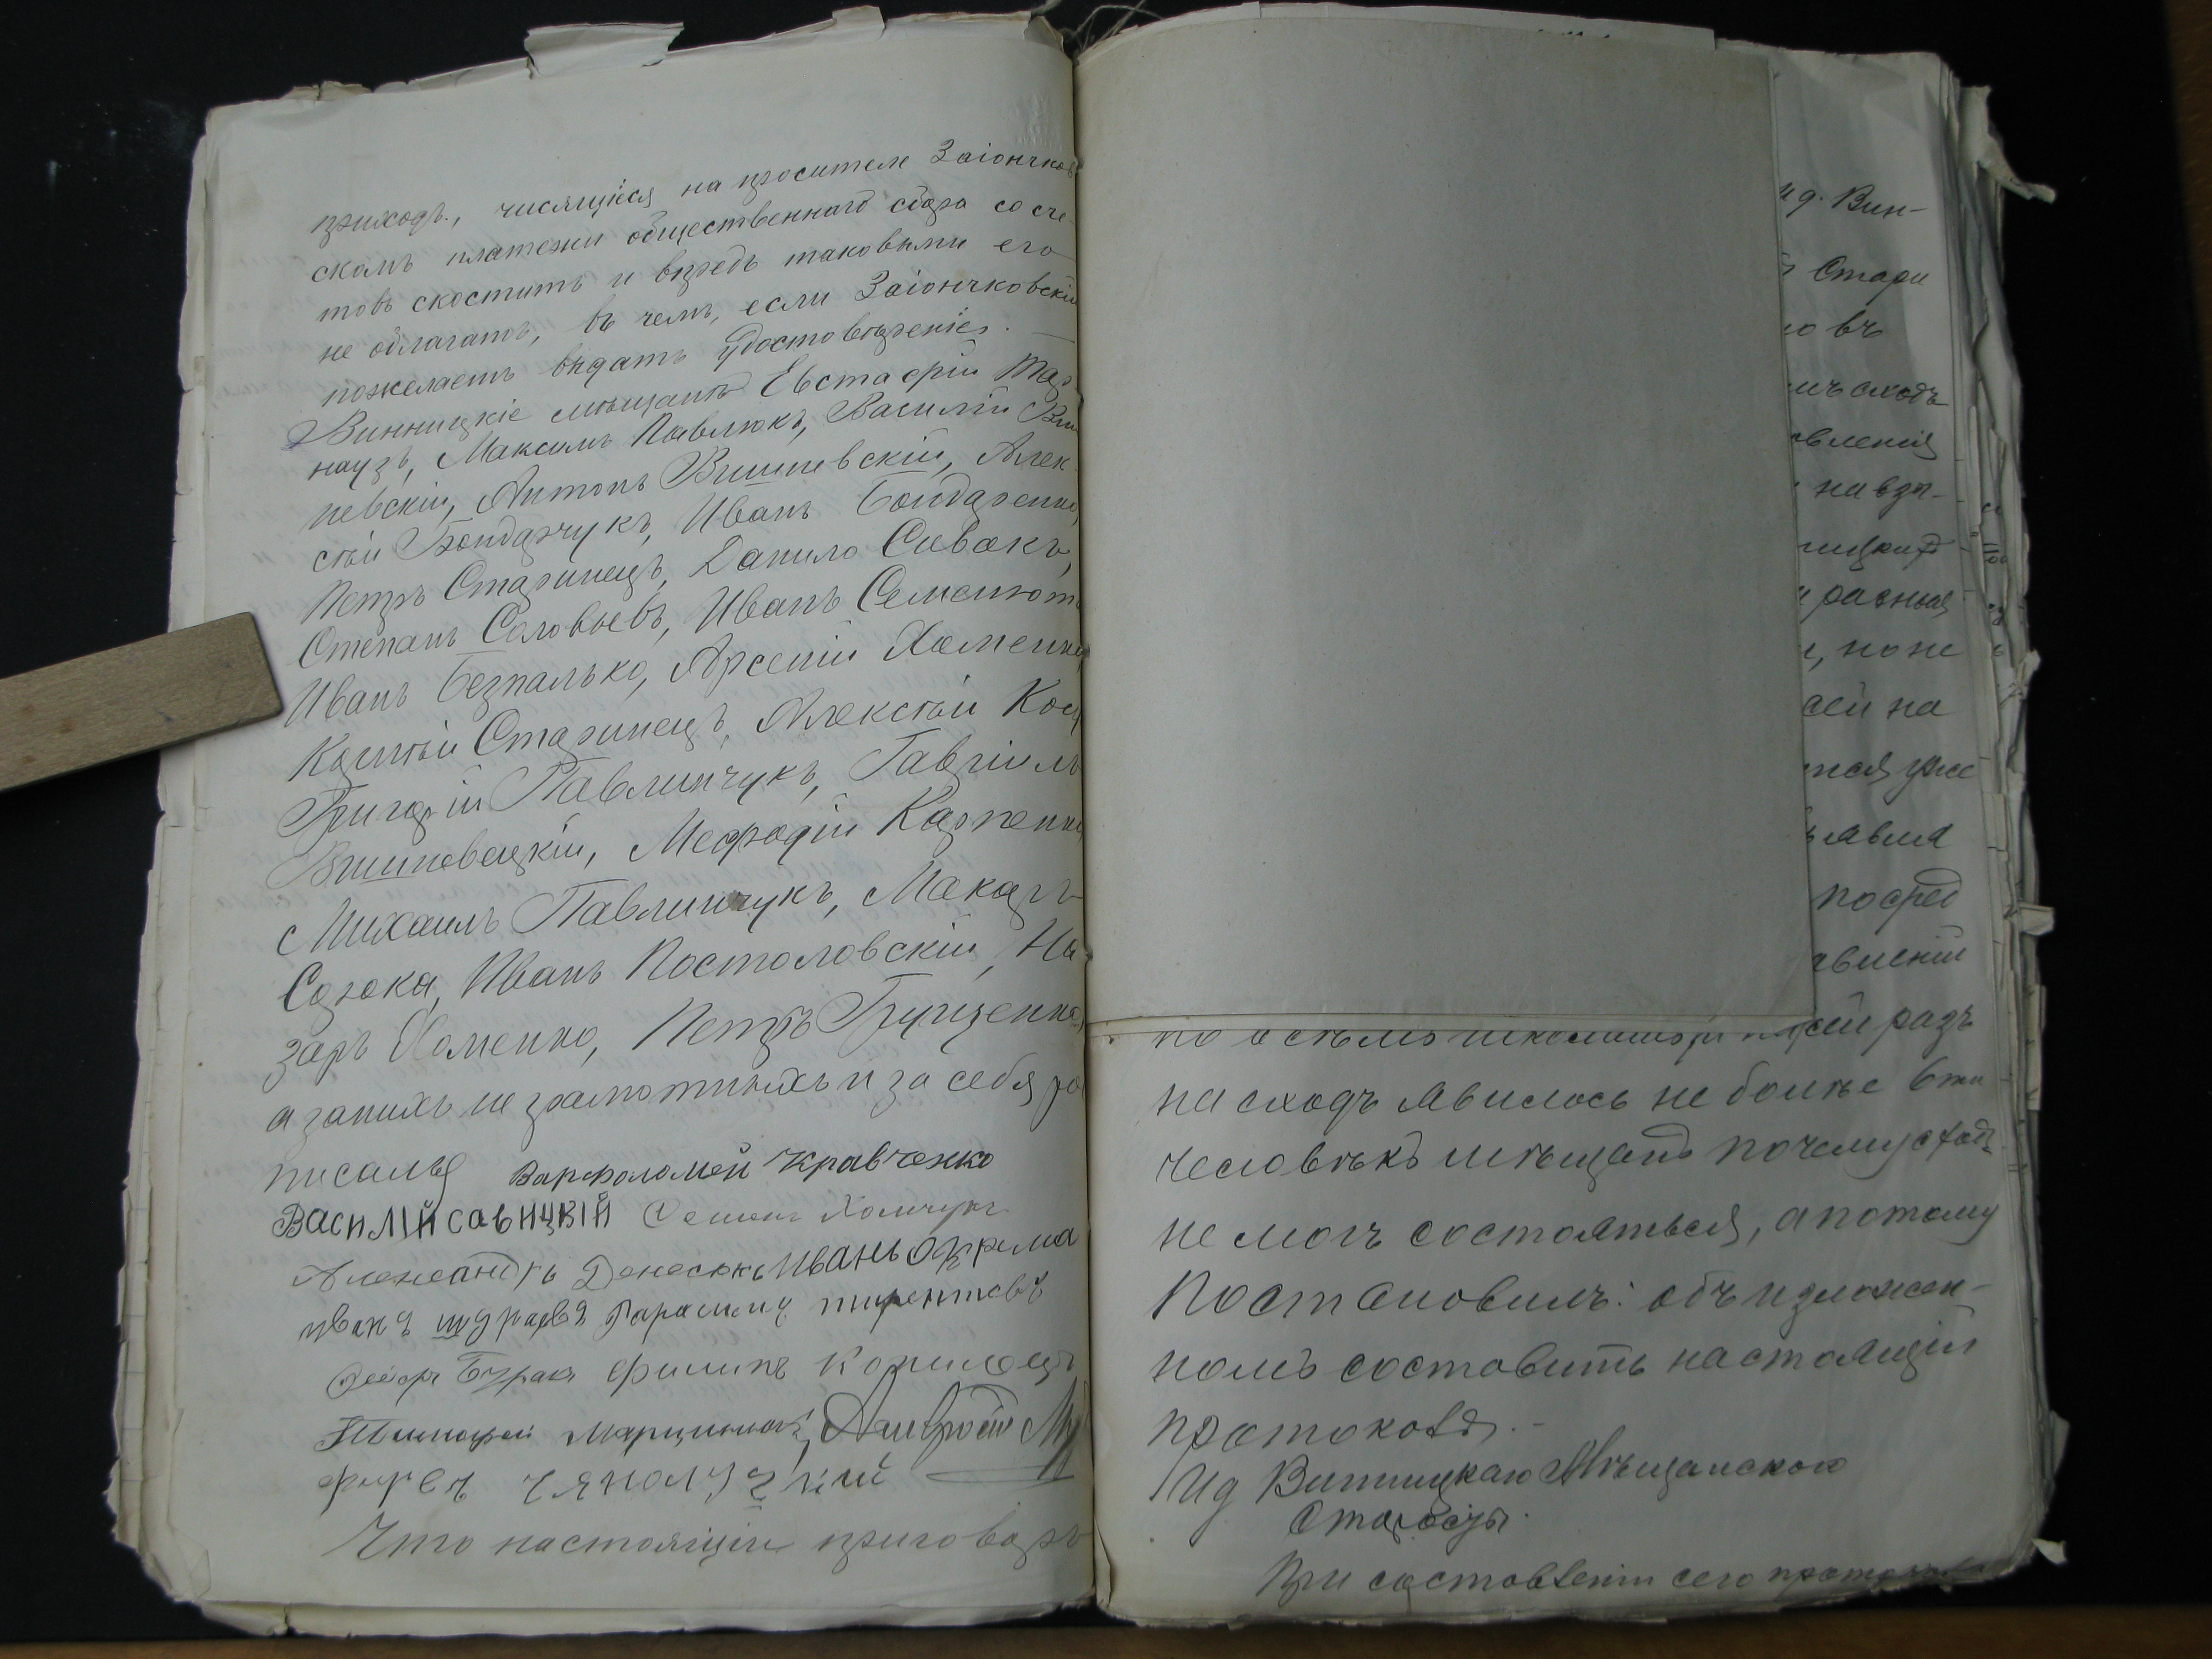 приходъ, числящіеся на просителе Заіончков
скомъ платежи общественнаго сбора со сче-
товъ скостить и впредь таковыми его
не облагать, въ чемъ, если Заіончковскій
пожелаетъ выдать удостовѣреніе.
Винницкіе мѣщане Евстафій Тар
наузъ, Максимъ Павлюкъ, Василій Виш
невскій, Антонъ Вишневскій, Алек
сѣй Бондарчукъ, Иванъ Бондаренко,
Петръ Старинецъ, Данило Сивакъ,
Степанъ Соловьевъ, Иванъ Семенютъ
Иванъ Безпалько, Арсеній Хоменко
Корнѣй Старинецъ, Алексѣй Коз
Григорій Павлинчукъ, Гавріилъ
Вишневецкій, Мефодій Карпенко
Михаилъ Павлинчукъ, Макаръ
Сорока, Иванъ Постоловскій, На
заръ Хоменко, Петръ Грищенко,
а за нихъ не грамотныхъ и за себя ро
писался Варфоломей Кравченко
Василій Савицкій Семенъ Хомчукъ
Александръ Денесюкъ Иванъ Охрема
Иванъ
Федоръ Буракъ Филипъ
Тимофей
Что настоящій приговоръ
ид. Вин-
Стари
о въ
мъ сходъ
овленія
на взы-
ницких
разныя
, но не
сей на
тся уже
явля
посред
авленій
сей разъ
на сходъ явилось не болѣе 6ти
человѣкъ мѣщанъ почему сходъ
не могъ состояться, а потому
Постановилъ: объ изложен-
номъ составить настоящій
протоколъ.-
Ид Винницкаго Мѣщанскаго
Старосты.
При составленіи сего протокола